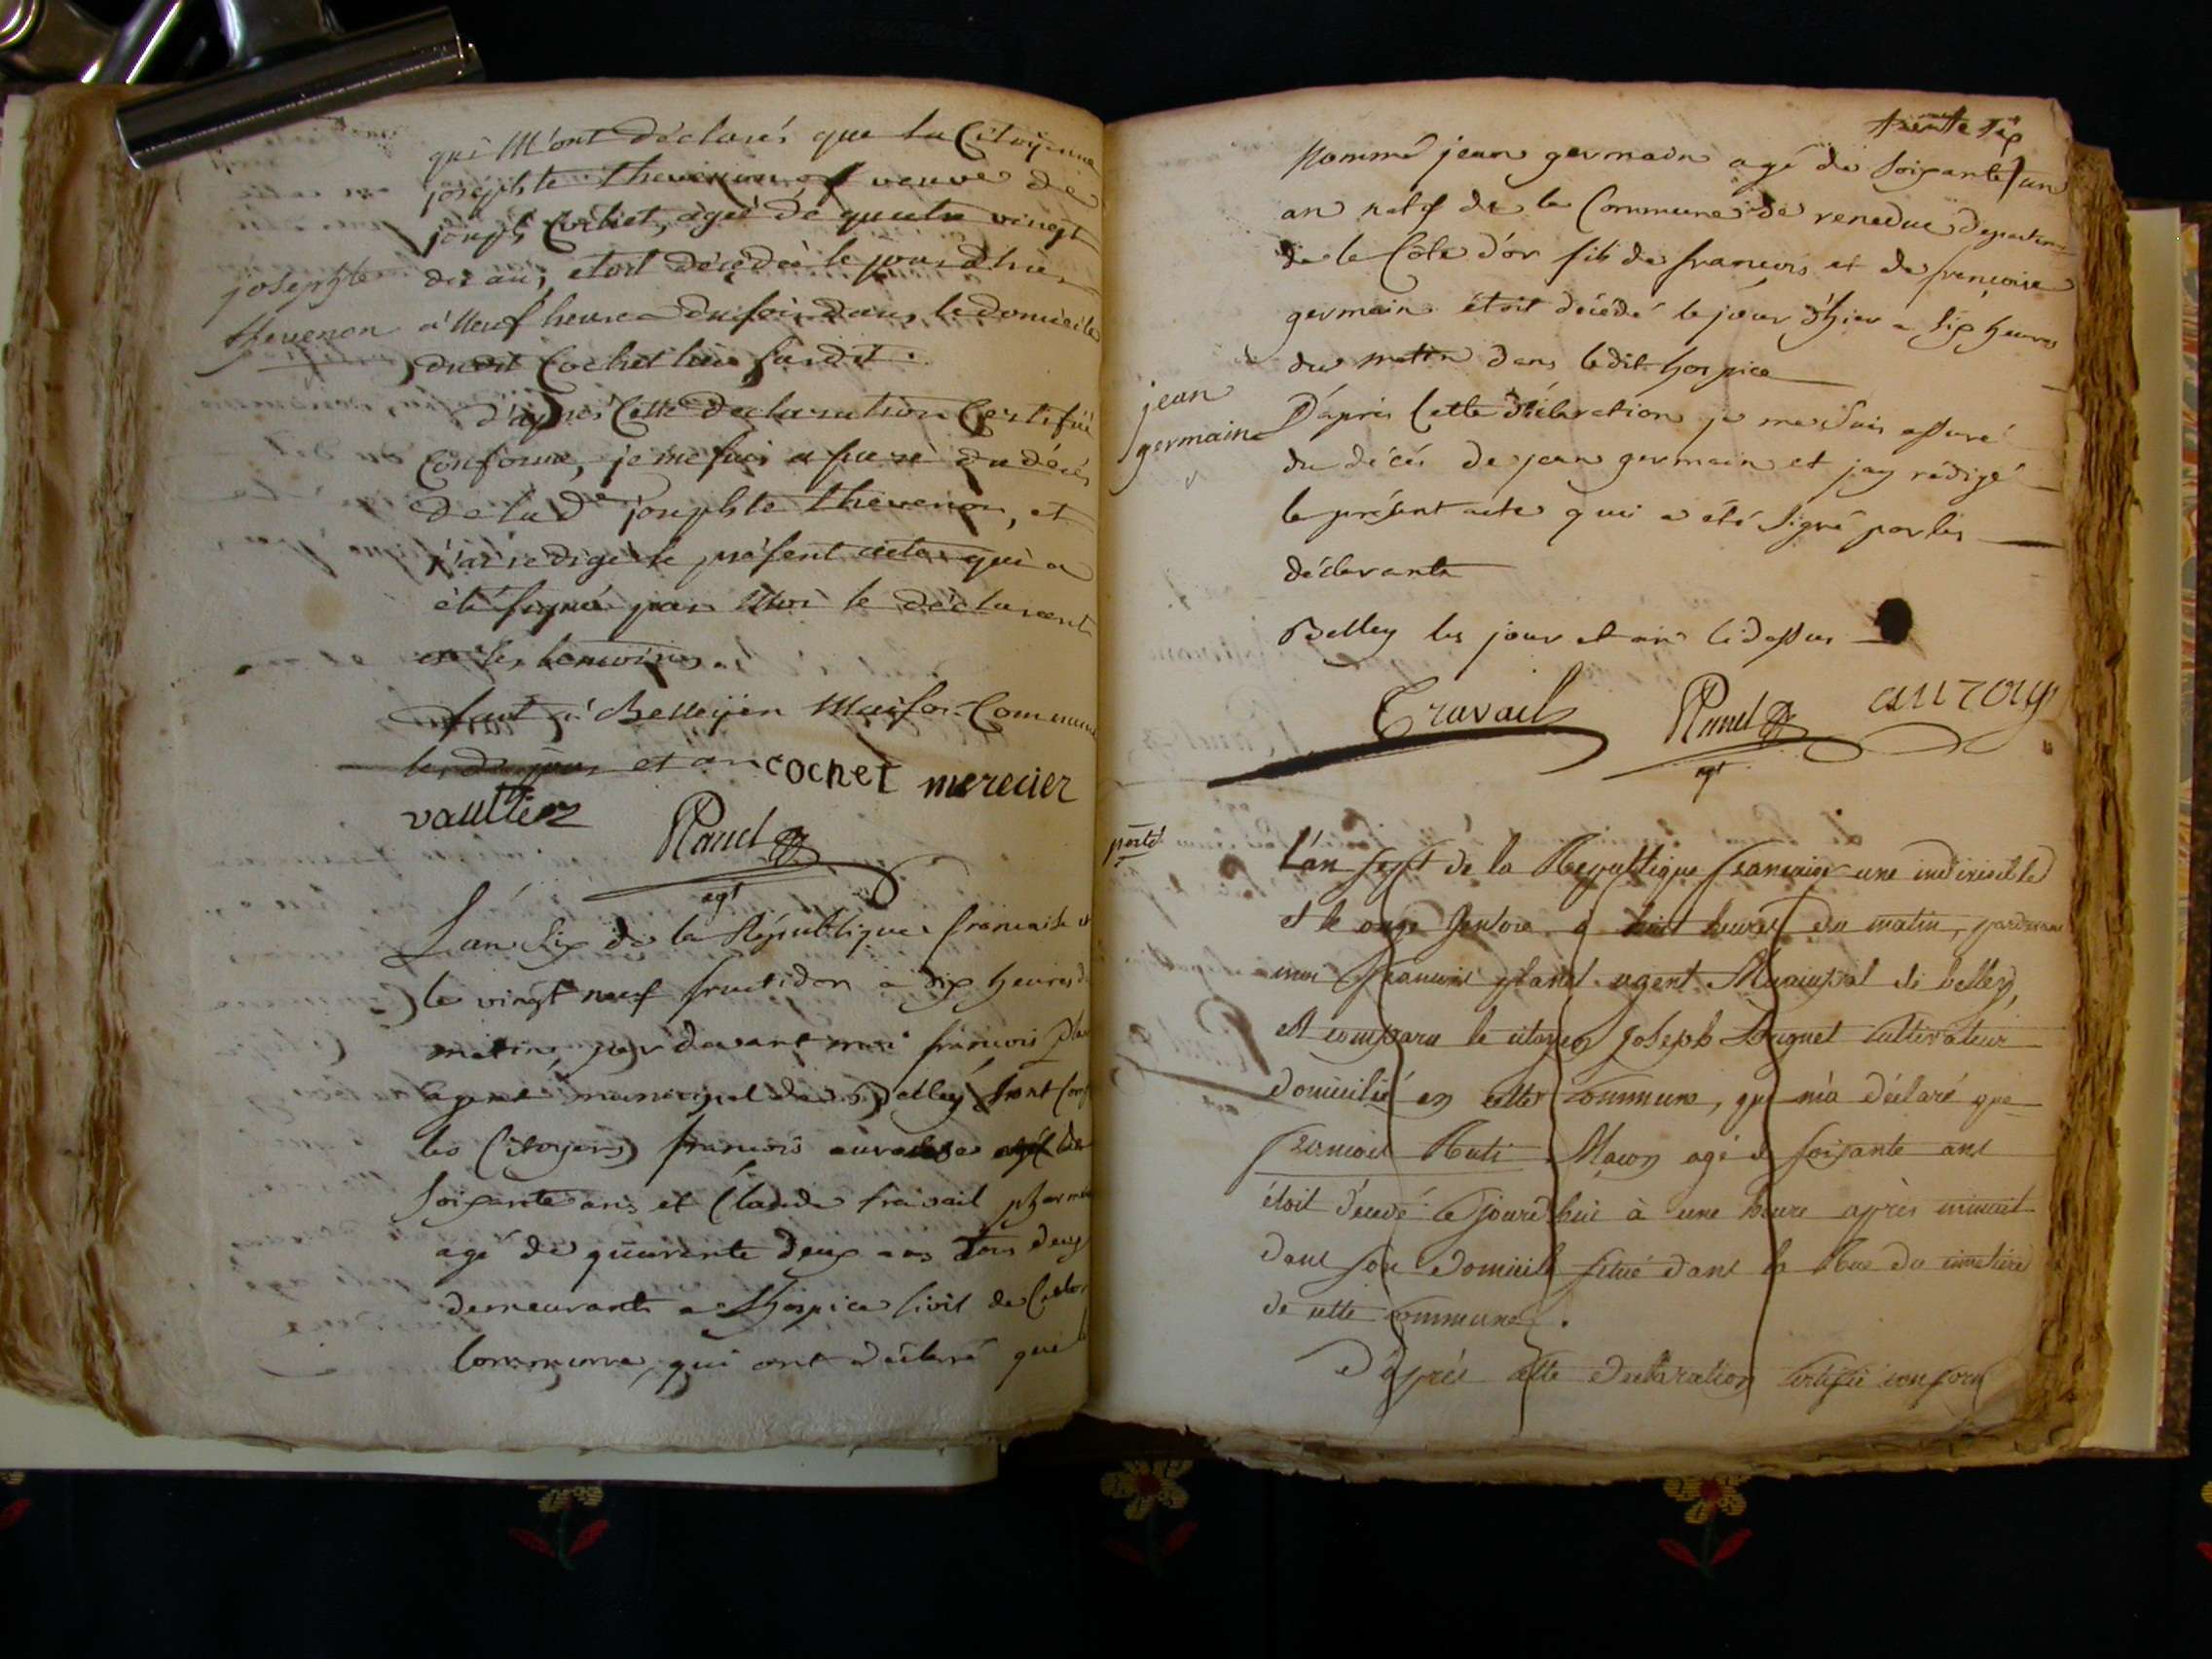 qui M'ont déclarés que la Citoyenne
josephte thevenon, veuve de
joseph Cochet, agée de quatre vingt
dix ans, etoit décédée le jour d'hier
josephte
thevenon
à Neuf heures du soir dans le domicile
dudit Cochet lieu susdit.
d'après Cette declaration Certifiée
Conforme, je me suis assuré du décés
de lad.e josephte thevenon, et
j'ai redigé le présent acte qui a
été signé par Moi le déclarant
et les temoins.
fait à Belley en Maison Commune
les d. jour et an cochet merecier
vaultier
Rand
agt
L'an Six de la République francaise et
le vingt neuf fructidor a dix heures du
matin, par devant moi francois
agent municipal de Belley sont
les Citoyens francois
soixante ans et Claude travail
agé de quarante deux ans tous deux
demeurants a l'hospice Civil de Cette
Commune, qui ont déclaré que le
trente six
Nommé jean germain agé de soixante un
an natif de la Commune de
de la Côte d'or fils de francois et de francoise
germain étoit décédé le jour d'hier a six heures
du matin dans ledit hospice
jean
germain
D'apris Cette déclaration je me suis assuré
du décés de jean germain et jay rédigé
le présent acte qui a été signé par les
déclarants
Belley les jour et an Cidessus
Travail Rand auroy
agt
porté
L'an sept de la Republique francaise une indivisible
et le onze Ventose à huit heures du matin, pardevant
moi francois agent Municipal de belley,
est comparu le citoyen Joseph cultivateur
domicilié en cette commune, qui m'a déclaré que
francois Macon agé de soixante ans
étoit décédé cejourd'hui à une heure après minuit
dans son domicile situé dans la Rue du cimetiere
de cette commune.
D'après cette declaration certifiée conforme